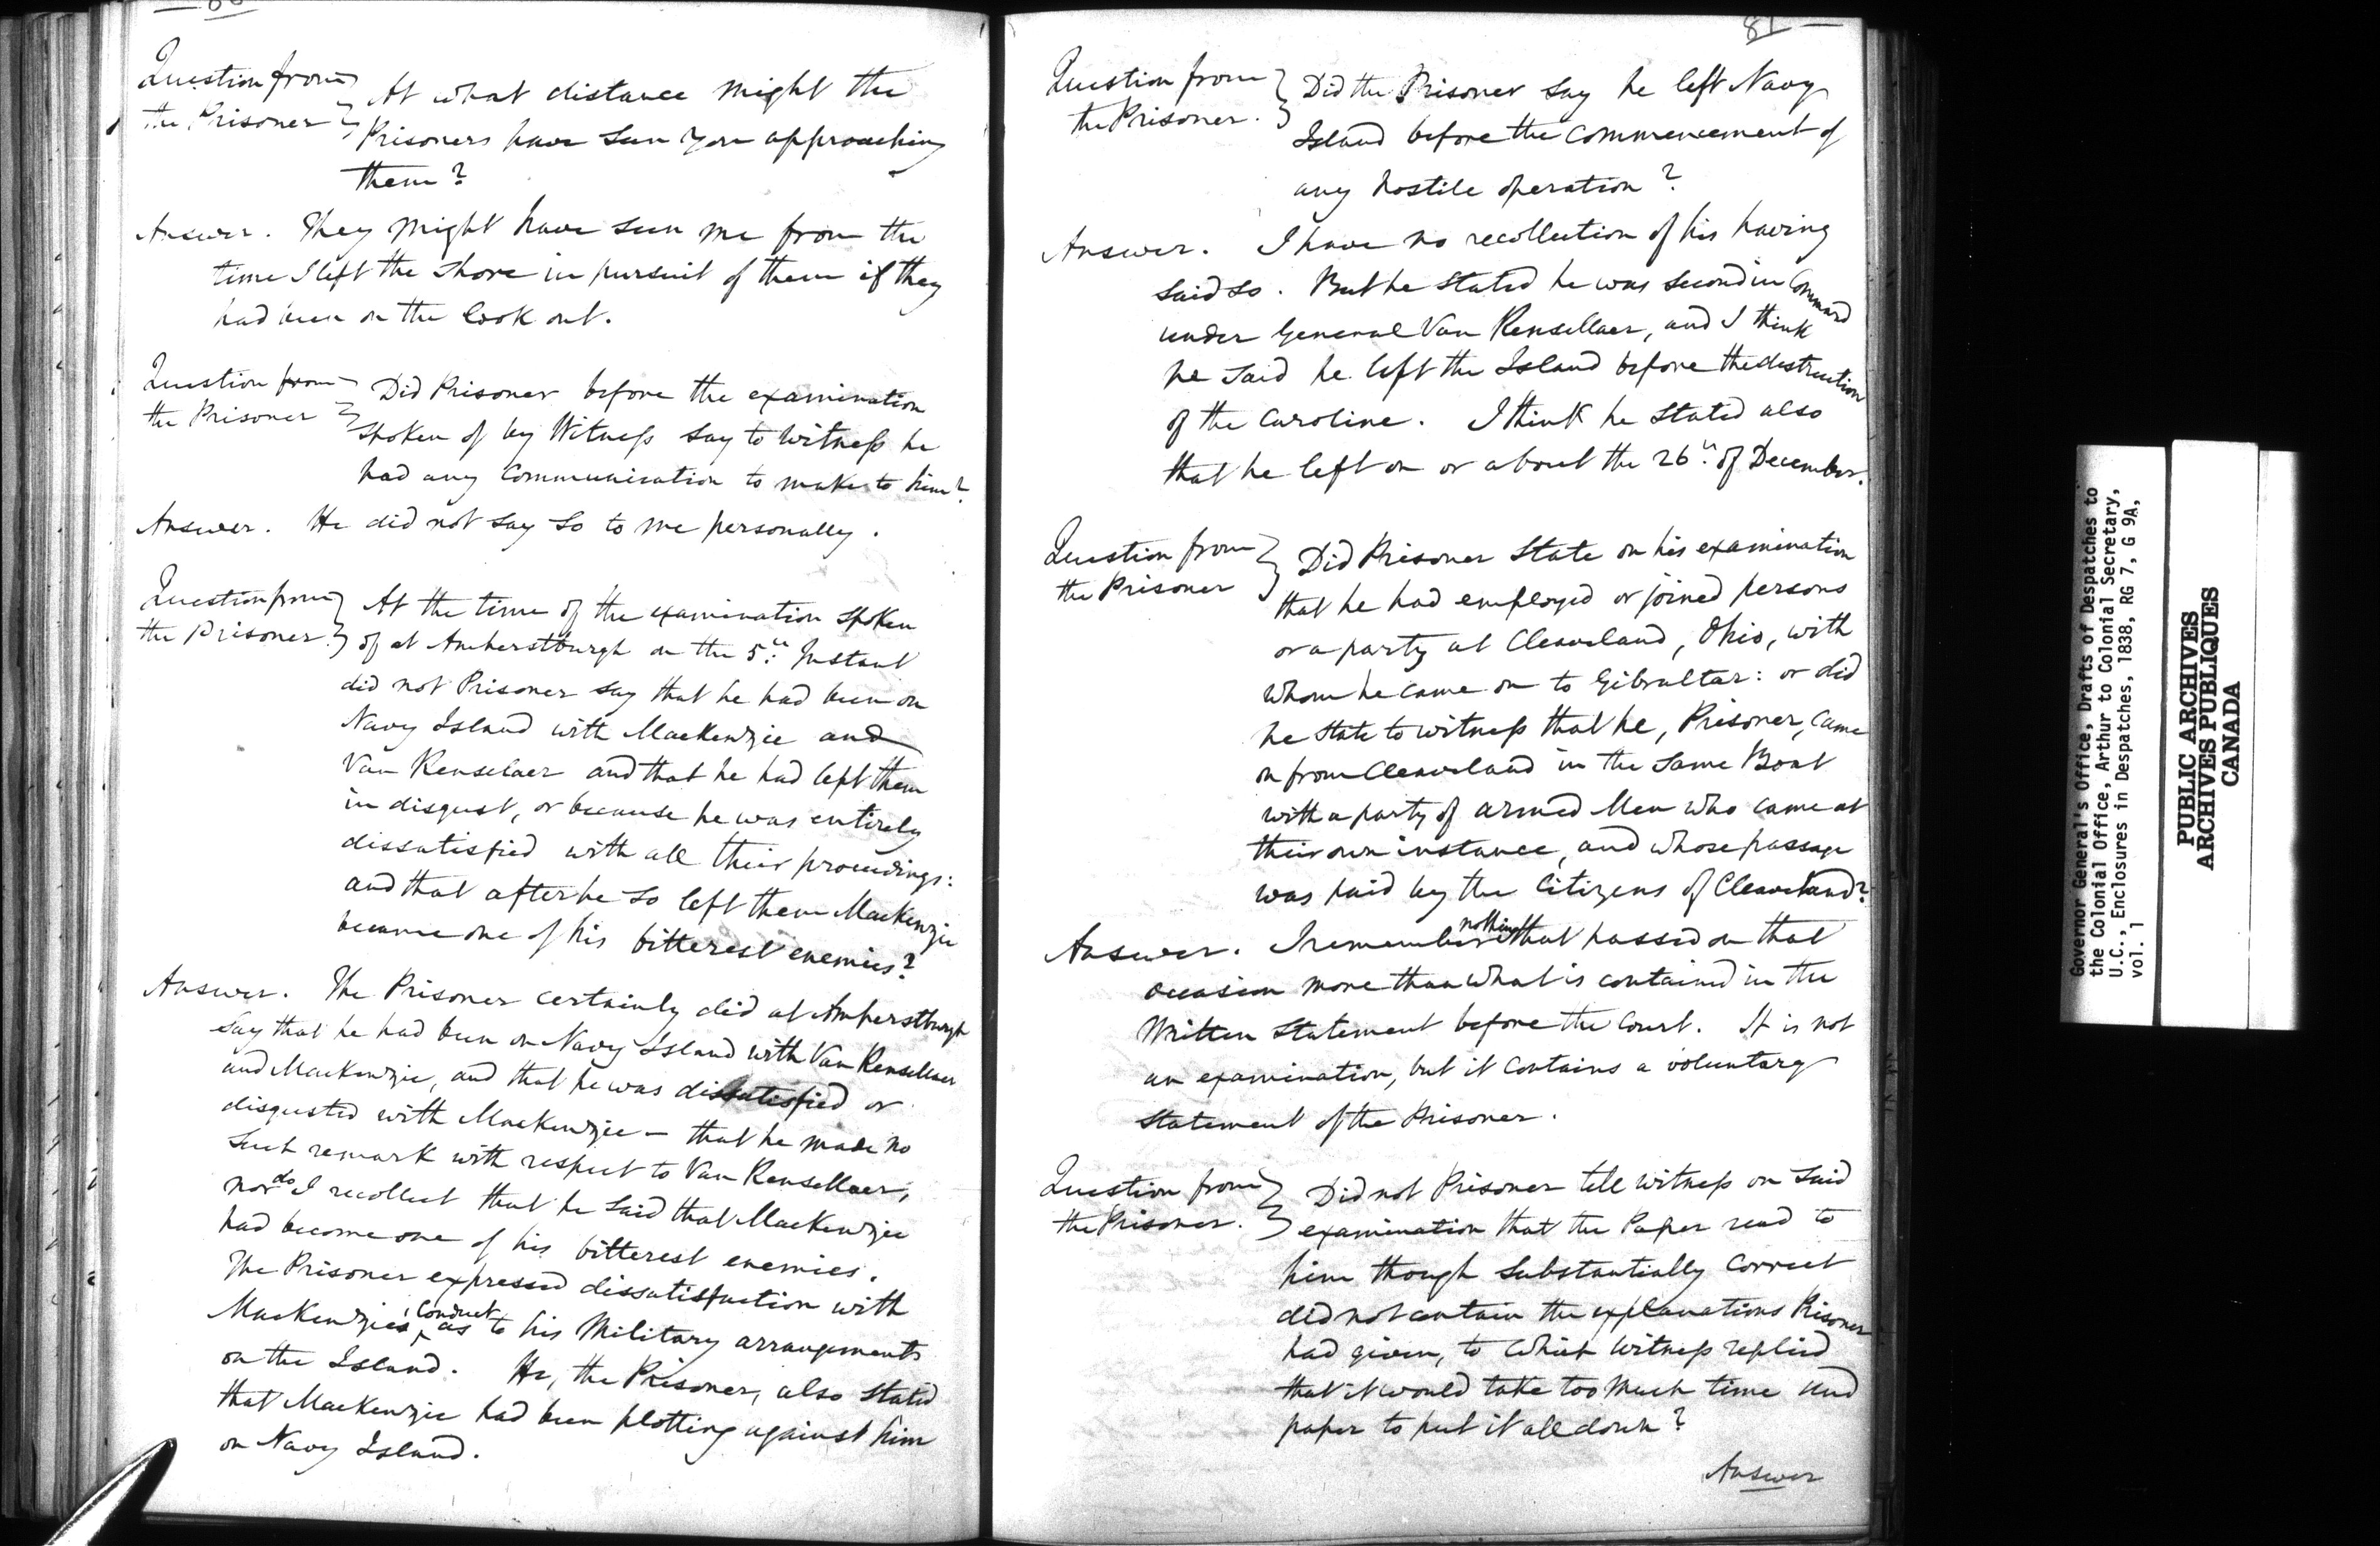 Question from
the Prisoner
At what distance might the
Prisoners have seen you approaching
them?
Answer. They might have seen me from the
time I left the shore in pursuit of them if they
had been on the look out.
Question from
the Prisoner
Did Prisoner before the examination
spoken of by Witness say to Witness he
had any communication to make to him?
Answer. He did not say so to me personally.
Question from
the Prisoner.
At the time of the examination spoken
of at Amherstburgh on the 5th. Instant
did not Prisoner say that he had been on
Navy Island with MacKenzie and
Van Renselaer and that he had left them
in disgust, or because he was entirely
dissatisfied with all their proceedings:
and that after he so left them MacKenzie
became one of his bitterest enemies?
Answer. The Prisoner certainly did at Amherstburgh
say that he had been on Navy Island with Van Rensellaer
and MacKenzie, and that he was dissatisfied or
disgusted with MacKenzie – that he made no
such remark with respect to Van Rensellaer,
nor do I recollect that he said that MacKenzie
had become one of his bitterest enemies.
The Prisoner expressed dissatisfaction with
MacKenzie's conduct as to his Military arrangements
on the Island. He, the Prisoner, also stated
that MacKenzie had been plotting against him
on Navy Island.
81
Question from
the Prisoner.
Did the Prisoner say he left Navy
Island before the commencement of
any hostile operation?
Answer. I have no recollection of his having
said so. But he stated he was second in Command
under General Van Rensellaer, and I think
he said he left the Island before the destruction
of the Caroline. I think he stated also
that he left on or about the 26th. of December.
Question from
the Prisoner
Did Prisoner state on his examination
that he had employed or joined persons
or a party at Cleaveland, Ohio, with
whom he came on to Gibraltar: or did
he state to witness that he, Prisoner, came
on from Cleaveland in the same Boat
with a party of armed Men who came at
their own instance, and whose passage
was paid by the Citizens of Cleaveland?
Answer. I remember nothing that passed on that
occasion more than what is contained in the
Written statement before the Court. It is not
an examination, but it contains a voluntary
statement of the Prisoner.
Question from
the Prisoner.
Did not Prisoner tell witness on said
examination that the Paper read to
him though substantially correct
did not contain the explanations Prisoner
had given, to which witness replied
that it would take too much time and
paper to put it all down?
Answer
Governor General's Office, Drafts of Despatches to
the Colonial Office, Arthur to Colonial Secretary,
U.C., Enclosures in Despatches, 1838, RG 7, G 9A,
vol. 1
PUBLIC ARCHIVES
ARCHIVES PUBLIQUES
CANADA